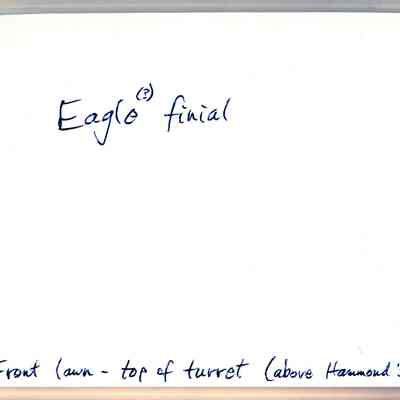 Eagle (?) finial
Front lawn - top of turret (above Hammond's